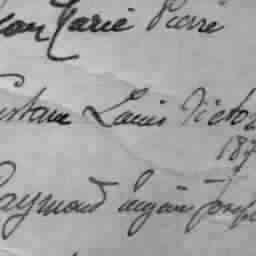 Jean Marie Pierre
Gustave Louis Victor
187
Raymond Eugène Joseph